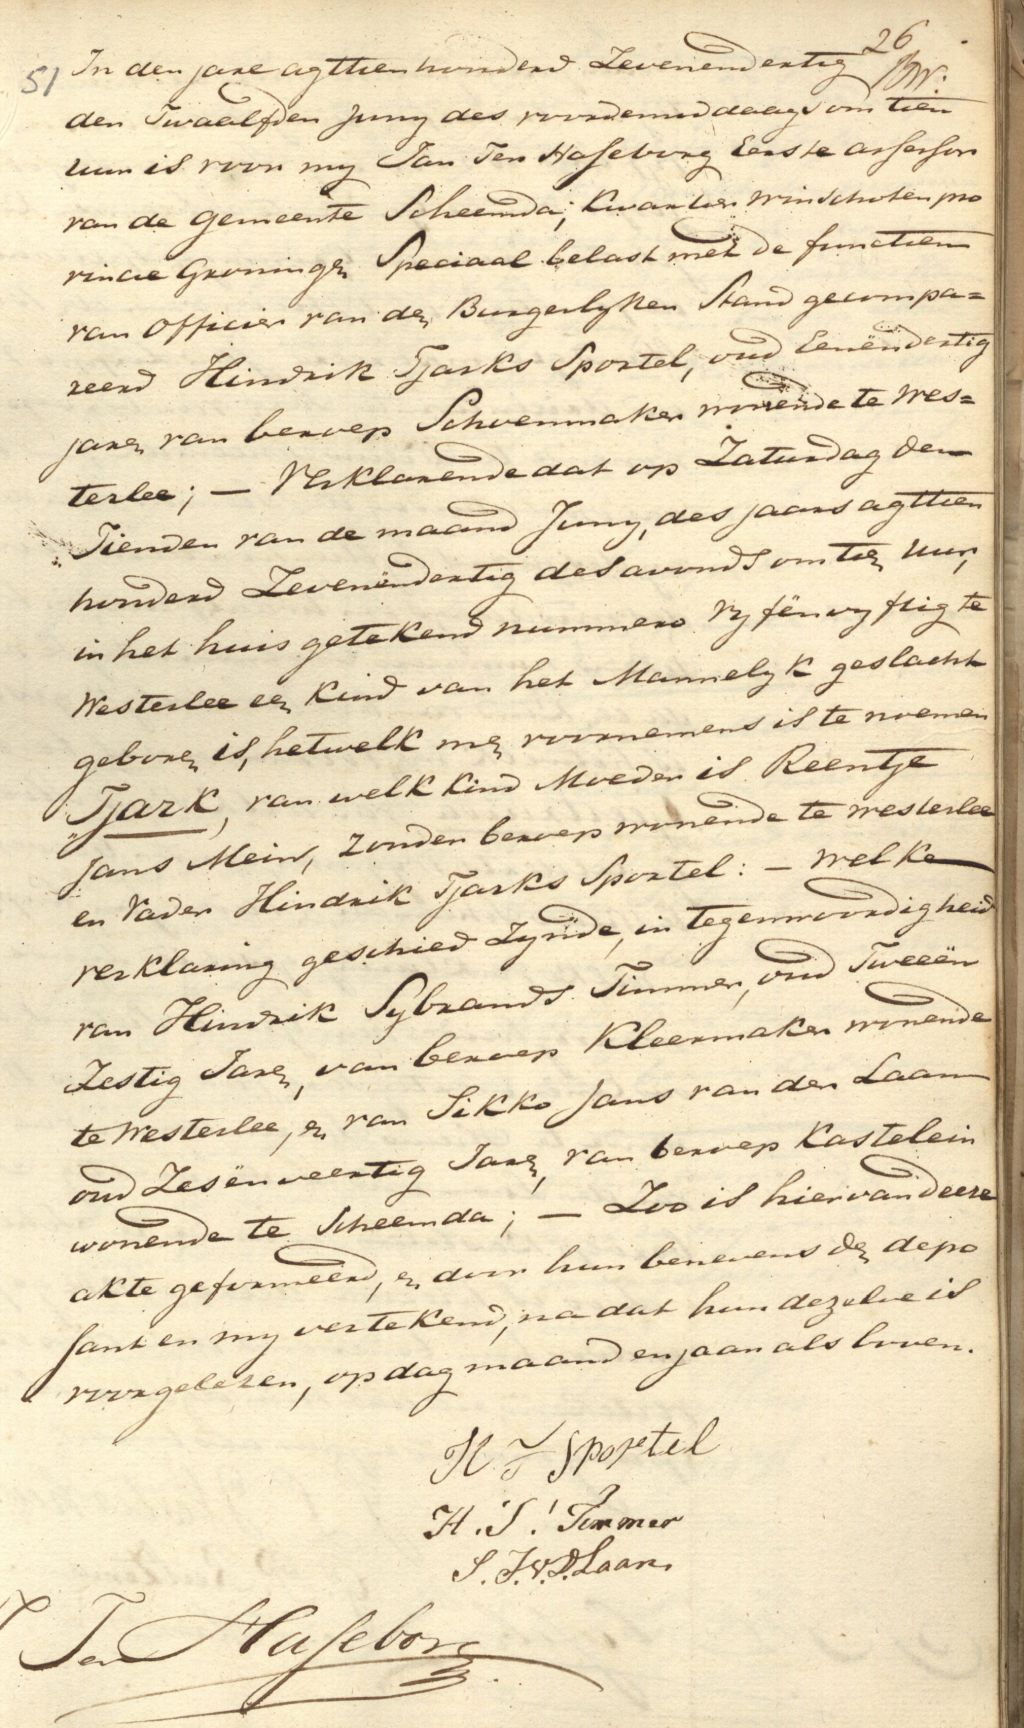 26
51 In den jare agttienhonderd Zevenendertig
den Twaalfden Juny des voordemiddaags om tien
uur is voor my Jan Ten Haseborg Eerste assessor
van de Gemeente Scheemda; Kwartier Winschoten pro
vincie Groningen Speciaal belast met de functien
van Officier van den Burgerlyken Stand gecompa=
reerd Hindrik Tjarks Sportel, oud Eenëndertig
jaren van beroep Schoenmaker wonende te Wes=
terlee; — Verklarende dat op Zaturdag den
Tienden van de maand Juny, des jaars agttien
honderd Zevenëndertig des avonds om tien uur,
in het huis getekend nummero Vyfënvyftig te
Westerlee een kind van het Mannelyk geslacht
geboren is, hetwelk men voornemens is te noemen
"Tjark, van welk kind Moeder is Reentje
Jans Mein, zonder beroep wonende te Westerlee
en Vader Hindrik Tjarks Sportel: — Welke
verklaring geschied Zynde, in tegenwoordigheid
van Hindrik Sybrands Timmer, oud Tweeën
Zestig Jaren, van beroep Kleermaker wonende
te Westerlee, en van Sikko Jans van der Laan
oud Zesënveertig Jaren, van beroep Kastelein
wonende te Scheemda; — Zoo is hiervan deeze
akte geformeerd, en door hun benevens den depo
sant en my vertekend, na dat hun dezelve is
voorgelezen, op dag maand en jaar als boven.
H T Sportel
H. S. Timmer
S. J. v. D. Laan.
J Ten Haseborg